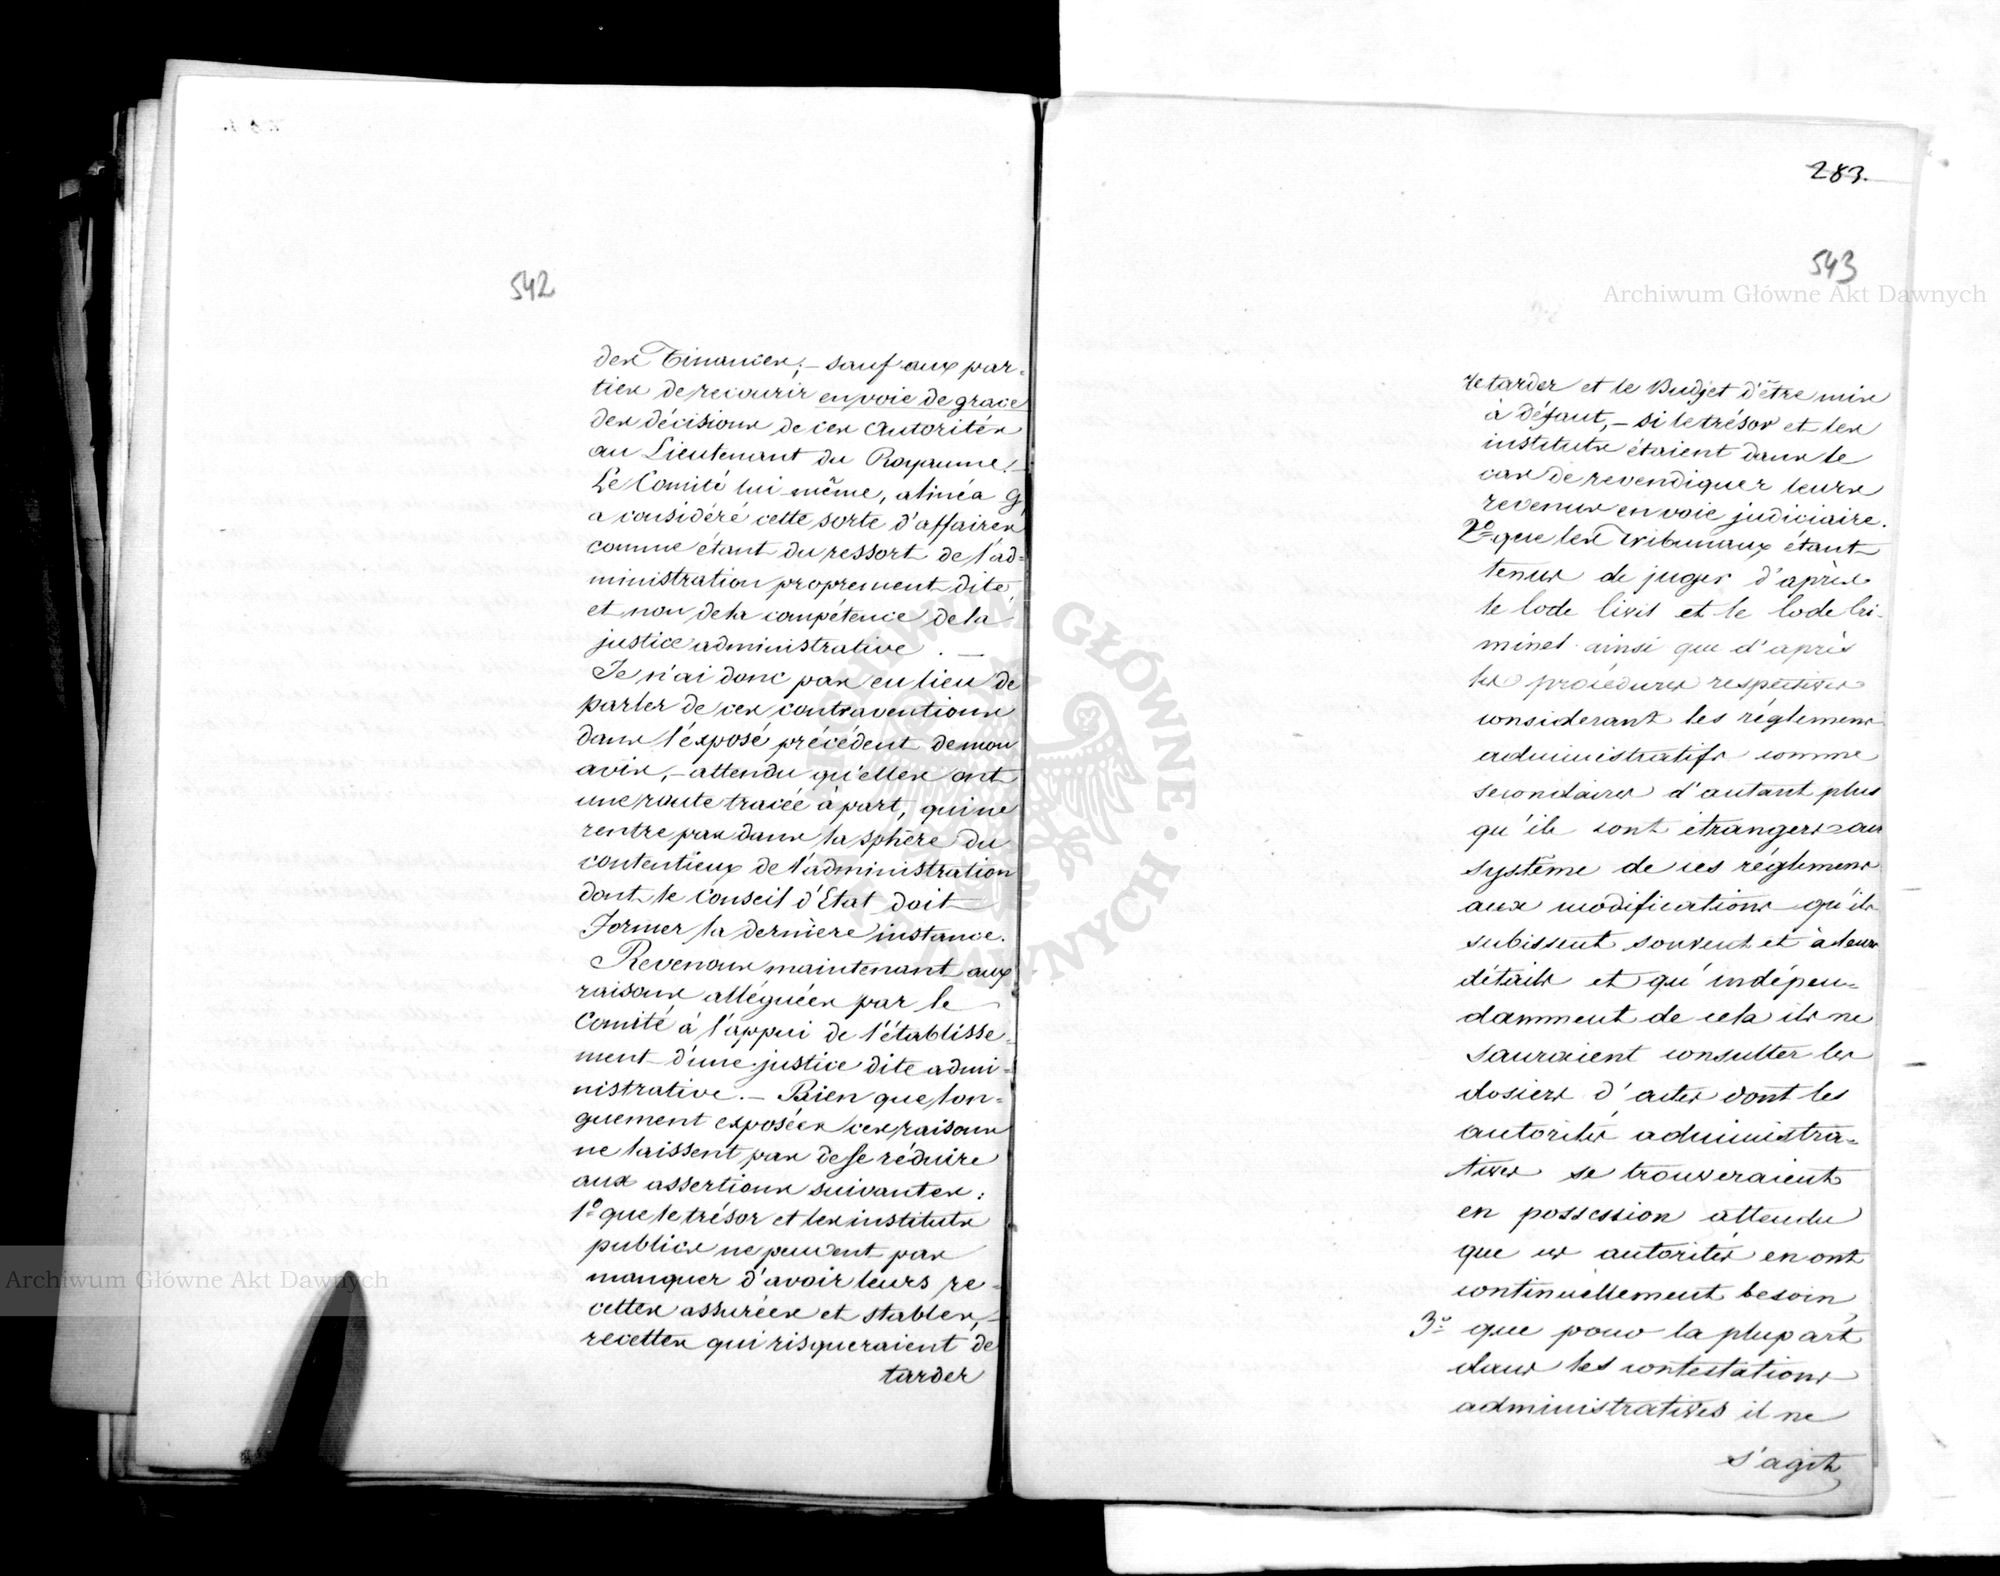 542
des Finances; – sauf aux par-
ties de recourir en voie de grace
des décisions de ces Autorités
au Lieutenant du Royaume! –
Le Comité lui même, alinéa g
a considéré cette sorte d'affaires
comme étant du ressort de l'ad-
ministration proprement dite,
et non de la compétence de la
justice administrative. —
Je n'ai donc pas eu lieu de
parler de ces contraventions
dans l'éxposé précédent de mon
avis, – attendu qu'elles ont
une route tracée à part, qui ne
rentre pas dans la sphère du
contentieux de l'administration
dont le Conseil d'Etat doit
former la dernière instance.
Revenons maintenant aux
raisons alléguées par le
Comité à l'appui de l'établisse-
ment d'une justice dite admi-
nistrative. – Bien que lon-
guement exposées ces raisons
ne laissent pas de se réduire
aux assertions suivantes:
1º que le trésor et les instituts
publics ne peuvent pas
manquer d'avoir leurs re-
cettes assurées et stables, –
recettes qui risqueraient de
tarder
283.
543
retarder et le Budjet d'être mis
à défaut, – si le trésor et les
instituts étaient dans le
cas de revendiquer leurs
revenus en voie judiciaire.
2º que les Tribunaux étant
tenus de juger d'après
le Code Civil et le Code Cri-
minel ainsi que d'après
les procédures respectives
considerant les réglemens
administratifs comme
secondaires d'autant plus
qu'ils sont étrangers au
système de ces réglemens
aux modifications qu'ils
subissent souvent et à leurs
détails et qu'indépen-
damment de cela ils ne
sauraient consulter les
dosiers d'actes dont les
autorités administra-
tives se trouveraient
en possession attendu
que ces autorités en ont
continuellement besoin,
3º que pour la plupart
dans les contestations
administratives il ne
s'agit
Archiwum Główne Akt Dawnych
Archiwum Główne Akt Dawnych
ARCHIWUM GŁÓWNE AKT DAWNYCH